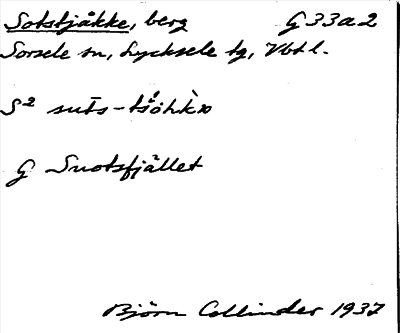 Sotstjåkke, berg G 33 a 2
Sorsele sn, Lycksele tg, Vbtl.
S²
G Snotsfjället
Björn Collinder 1937